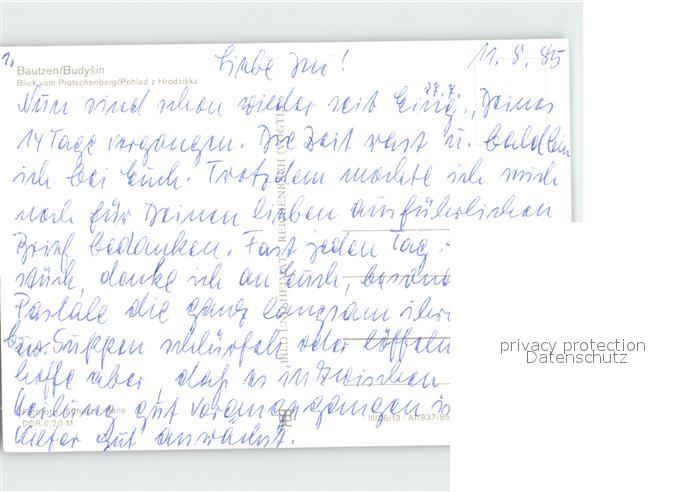 1.
Bautzen/Budyšin
Blick vom Protschenberg/Pohlad z Hrodžiška
Liebe Ini!
11.8.85
27.7.
Nun sind schon wieder seit Eing. Deines
14 Tage vergangen. Die Zeit rast u. bald bin
ich bei Euch. Trotzdem möchte ich mich
noch für Deinen lieben ausführlichen
Brief bedanken. Fast jeden Tag
denke ich an Euch,
die ganz langsam ihre
bzw. Suppen schlürfen oder löffeln
hoffe aber, daß es inzwischen
Heilung gut vorangegangen
Kiefer gut anwächst.
BILD UND HEIMAT REICHENBACH (VOGTL)
DDR 0,20 M
III/26/13 · A1/937/85
privacy protection
Datenschutz